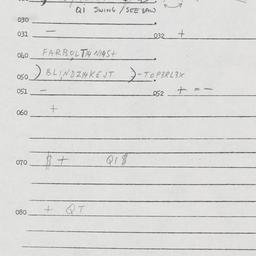 QI SWING / SEE SAW
030
031 — 032 +
040 FARBOLTHNASt
050 ) BLINDZHKEJT )-TOPERLEX
051 — 052 + = -
060 +
070 $ + QI $
080 + QT